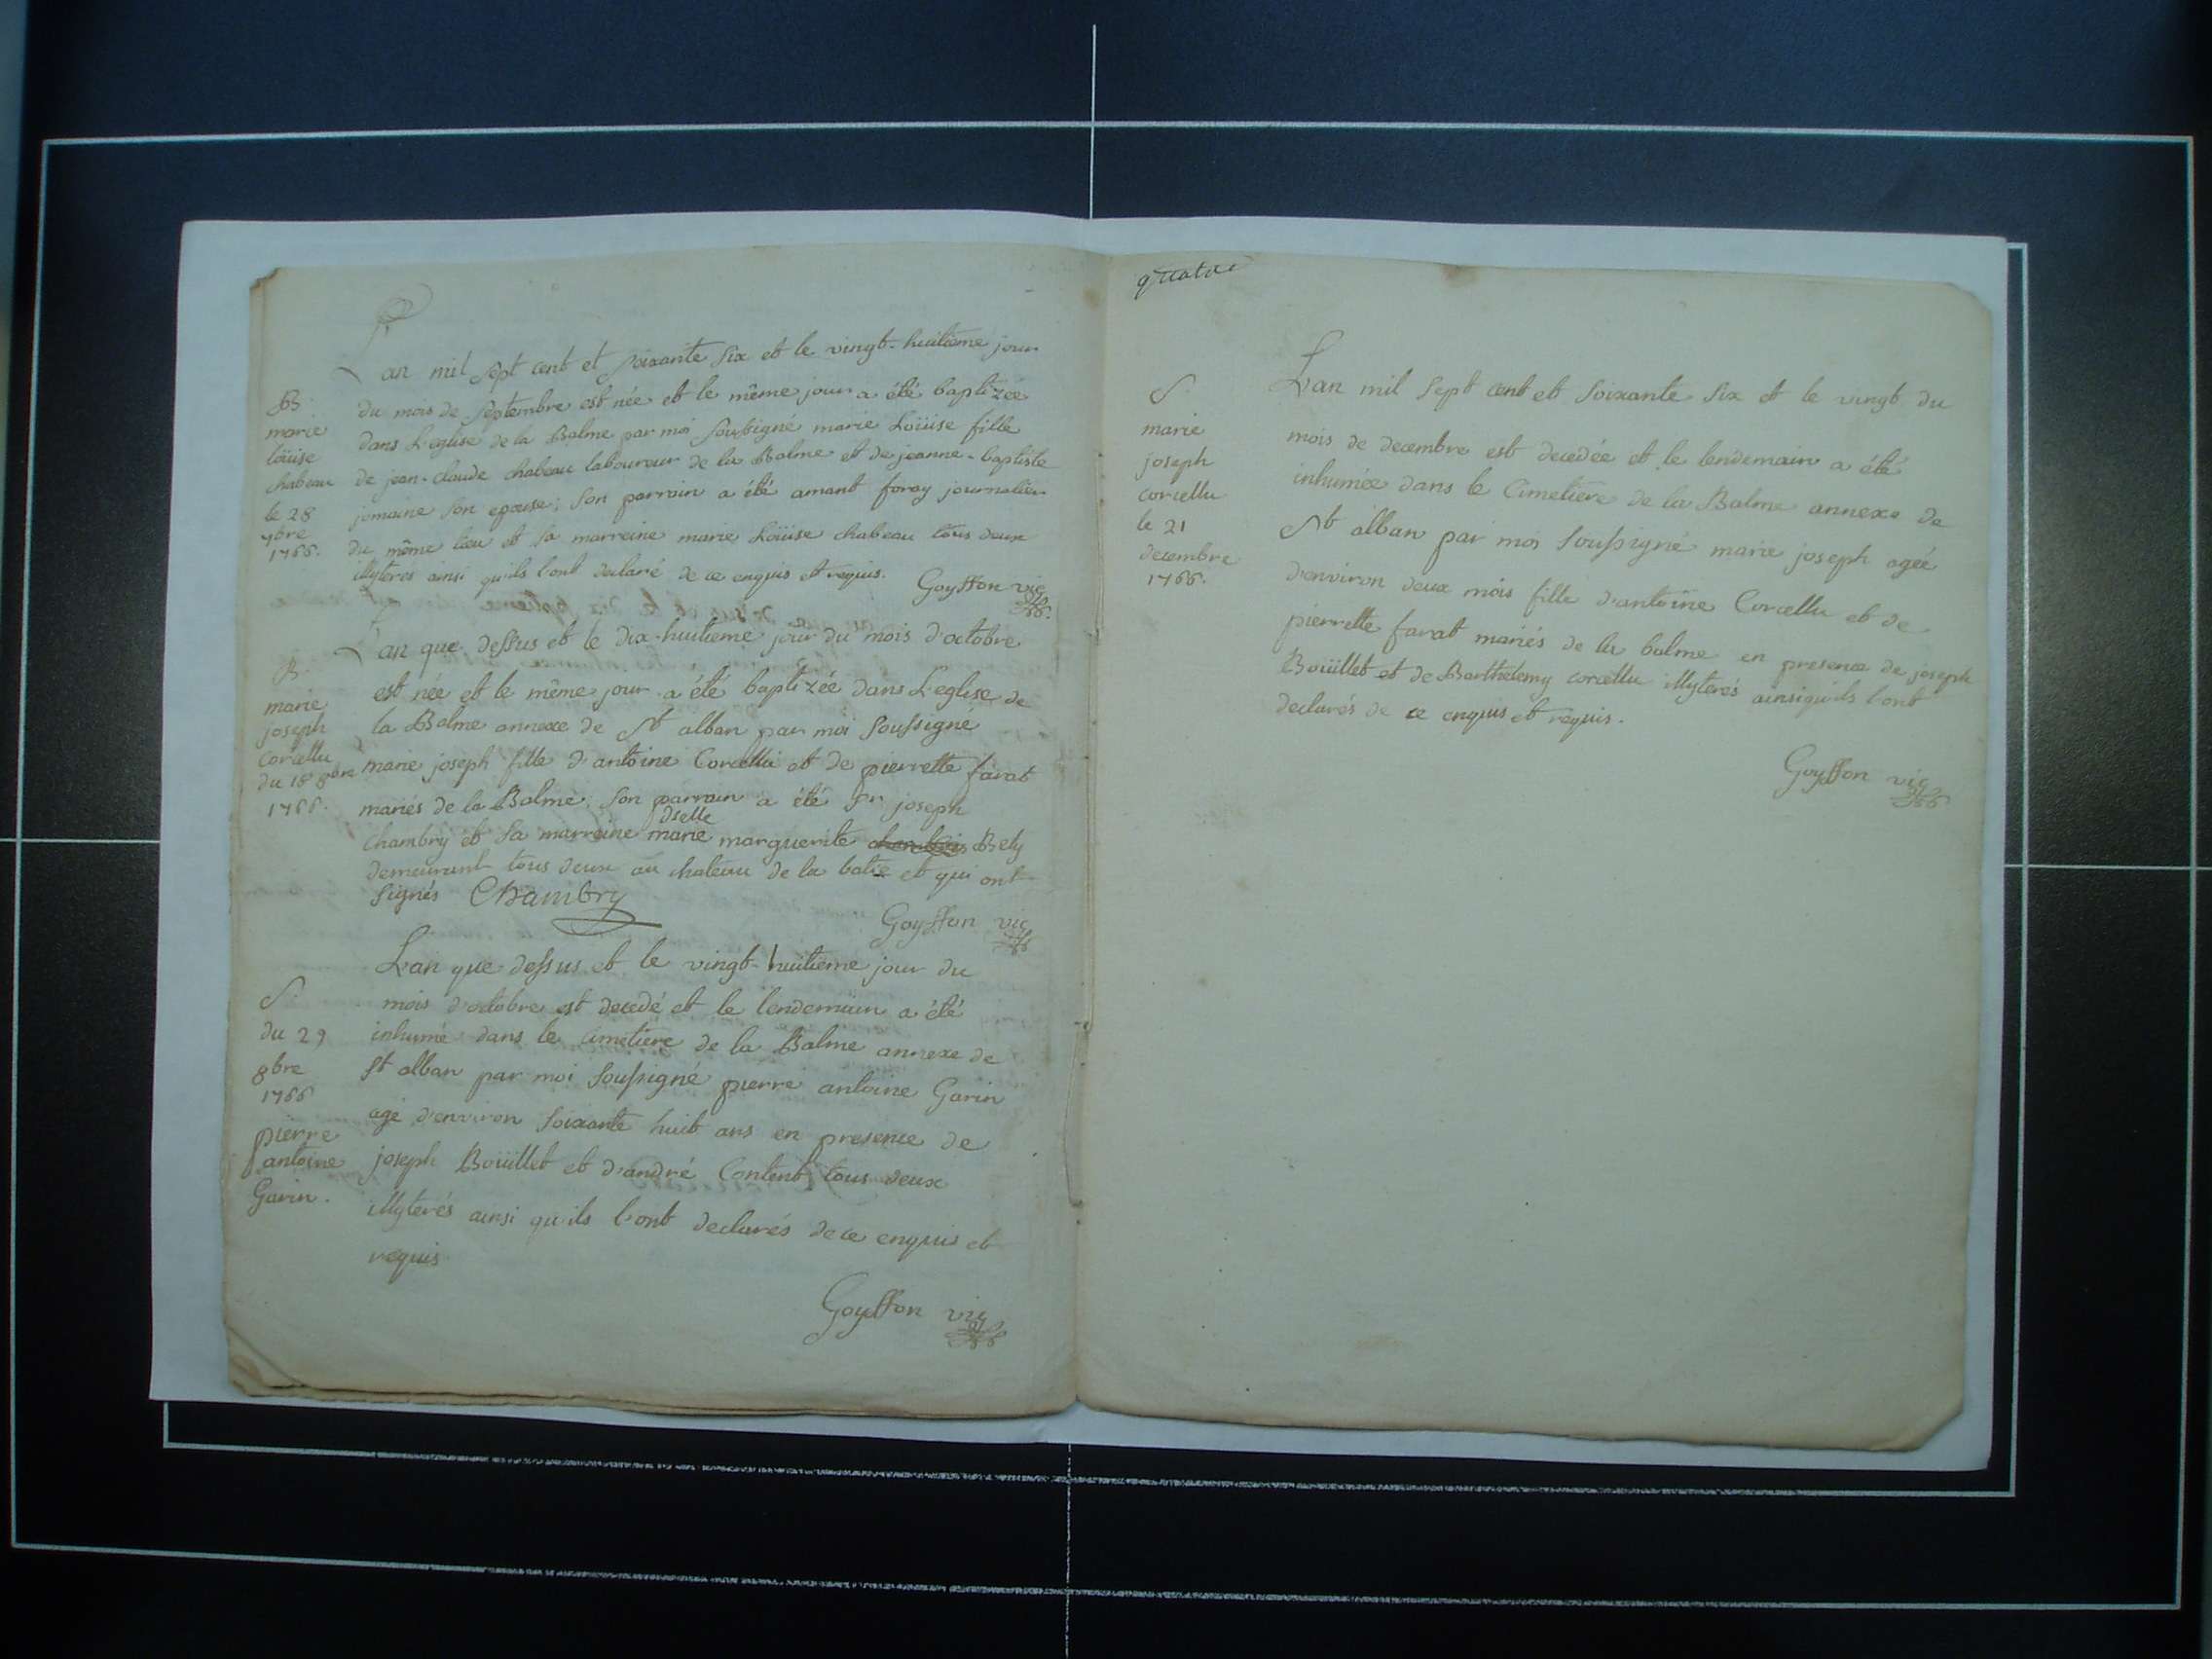 L'an mil Sept cent et soixante six et le vingt-huitieme jour
B.
marie
loüise
chabeau
le 28
7bre
1766.
du mois de Septembre est née et le même jour a été baptizée
dans L'eglise de la Balme par moi soussigné marie Loüise fille
de jean-claude chabeau laboureur de la Balme et de jeanne-baptiste
jomaine son epouse; son parrain a été amant foray journalier
du même lieu et sa marreine marie Loüise chabeau tous deux
illyterés ainsi qu'ils l'ont declaré de ce enquis et requis.
Goyffon vic
L'an que dessus et le dix-huitieme jour du mois d'octobre
B.
marie
joseph
corcellu
du 18 8bre
1766.
est née et le même jour a été baptizée dans L'eglise de
la Balme annexe de St alban par moi soussigné
marie joseph fille d'antoine Corcellu et de pierrette farat
mariés de la Balme; son parrain a été Sr joseph
dselle
chambry et sa marreine marie marguerite Bely
demeurant tous deux au chateau de la batie et qui ont
signés Chambry
Goyffon vic
L'an que dessus et le vingt-huitieme jour du
S.
du 29
8bre
1766
pierre
antoine
Garin.
mois d'octobre est decedé et le lendemain a été
inhumé dans le Cimetiere de la Balme annexe de
St alban par moi soussigné pierre antoine Garin
agé d'environ soixante huit ans en presence de
joseph Boüillet et d'andré Content tous deux
illyterés ainsi qu'ils l'ont declarés de ce enquis et
requis
Goyffon vic
quatre
S.
marie
joseph
corcellu
le 21
decembre
1766.
L'an mil Sept cent et soixante six et le vingt du
mois de decembre est decedée et le lendemain a été
inhumée dans le Cimetiere de la Balme annexe de
St alban par moi soussigné marie joseph agée
d'environ deux mois fille d'antoine Corcellu et de
pierrette farat mariés de la balme en presence de joseph
Boüillet et de Barthelemy corcellu illyterés ainsi qu'ils l'ont
declarés de ce enquis et requis.
Goyffon vic